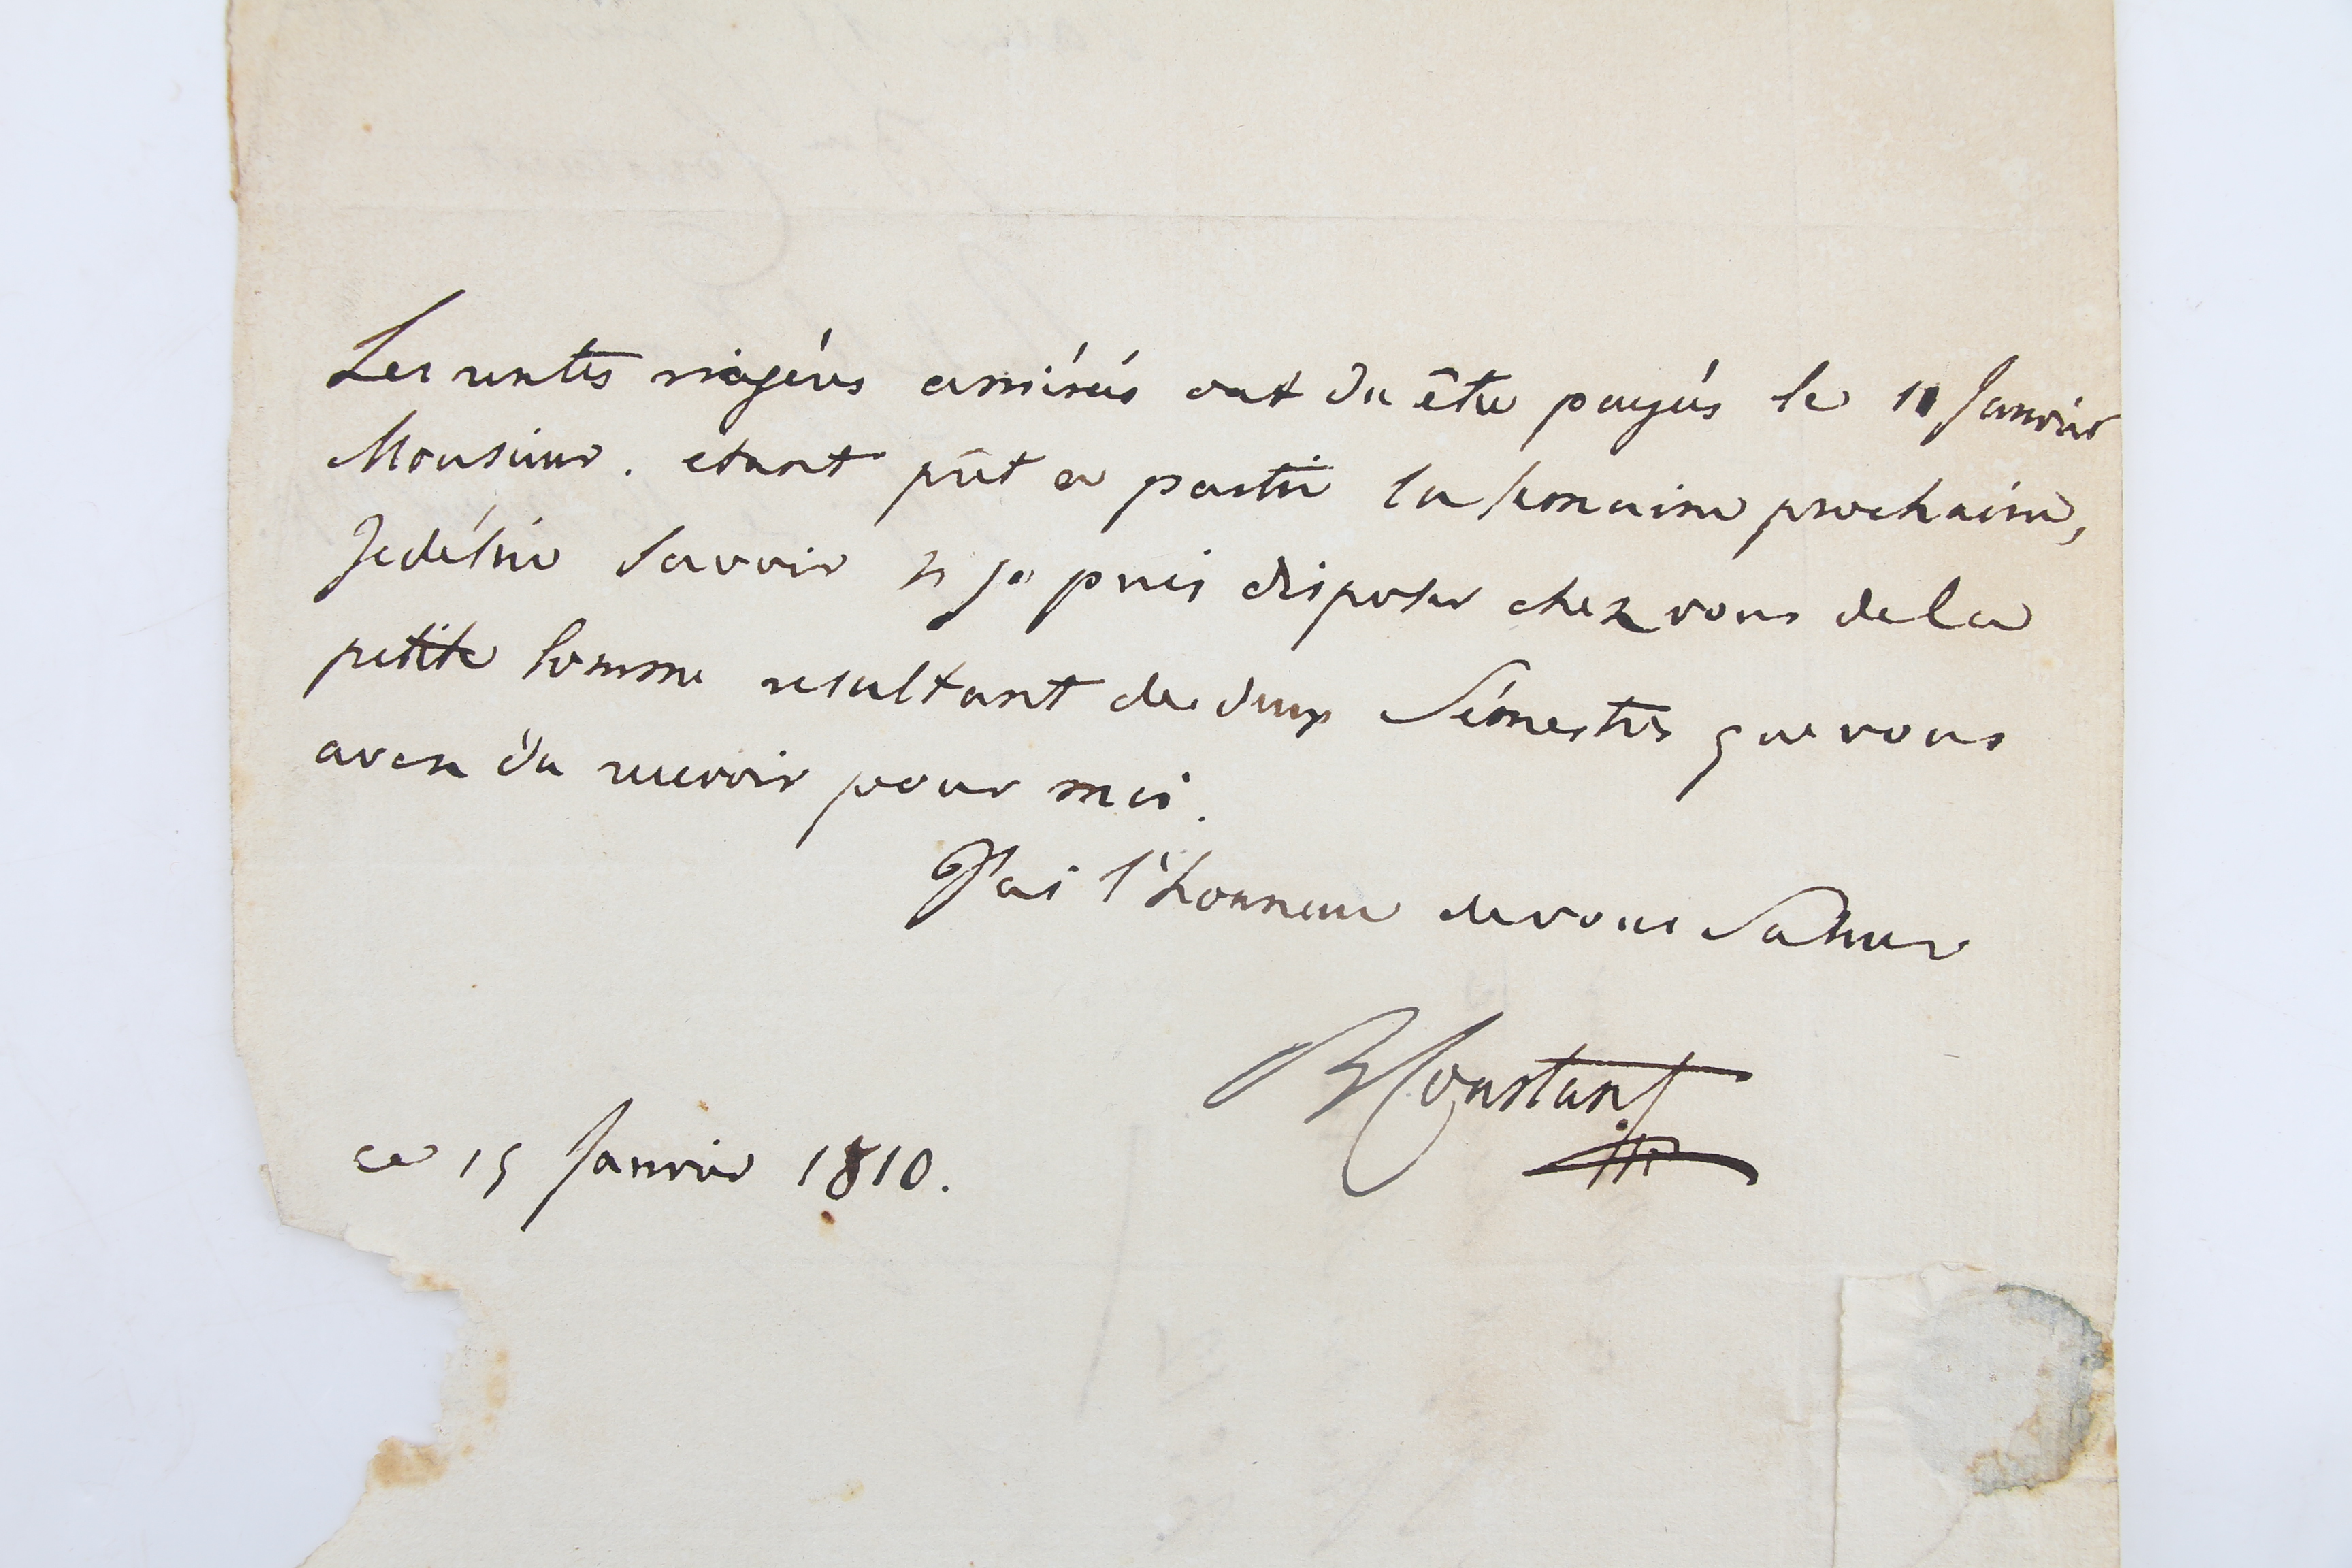 Les rentes viagères arriérées ont du être payées le 11 Janvier
Monsieur. etant prêt a partir la semaine prochaine,
Je désire savoir si je puis disposer chez vous de la
petite somme resultant de deux Sémestres que vous
avez du recevoir pour moi.
J'ai l'honneur de vous Saluer
BConstant
ce 15 Janvier 1810.